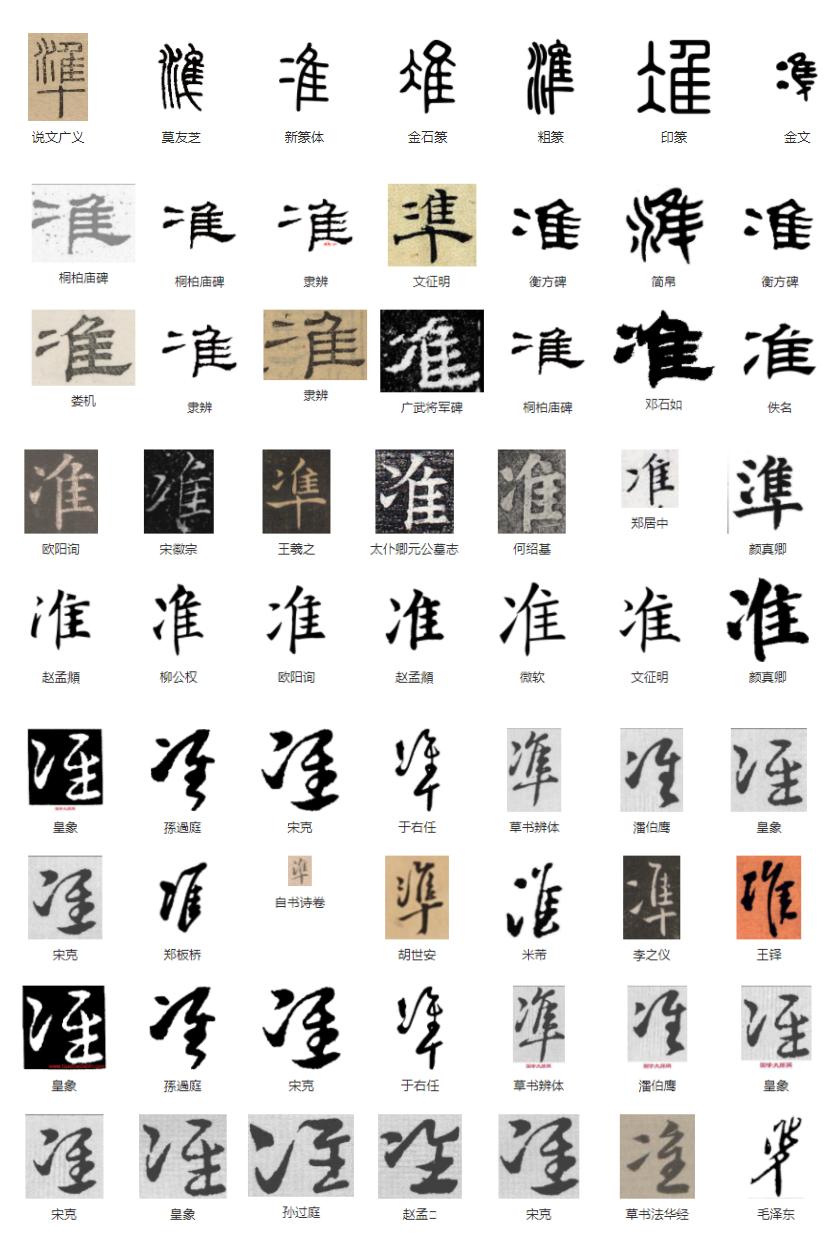 準 準 准 准 準 准 準
说文广义 莫友芝 新篆体 金石篆 粗篆 印篆 金文
准 准 准 準 准 準 准
桐柏庙碑 桐柏庙碑 隶辨 文征明 衡方碑 简帛 衡方碑
准 准 准 准 准 准 准
娄机 隶辨 隶辨 广武将军碑 桐柏庙碑 邓石如 佚名
准 准 準 准 准 准 準
欧阳询 宋徽宗 王羲之 太仆卿元公墓志 何绍基 郑居中 颜真卿
准 准 准 准 准 准 准
赵孟頫 柳公权 欧阳询 赵孟頫 微软 文征明 颜真卿
准 準 准 準 準 准 准
皇象 孫過庭 宋克 于右任 草书辨体 潘伯鹰 皇象
准 准 準 準 准 準 准
宋克 郑板桥 自书诗卷 胡世安 米芾 李之仪 王铎
准 準 准 準 準 准 准
皇象 孫過庭 宋克 于右任 草书辨体 潘伯鹰 皇象
准 准 准 准 准 准 準
宋克 皇象 孙过庭 赵孟 宋克 草书法华经 毛泽东